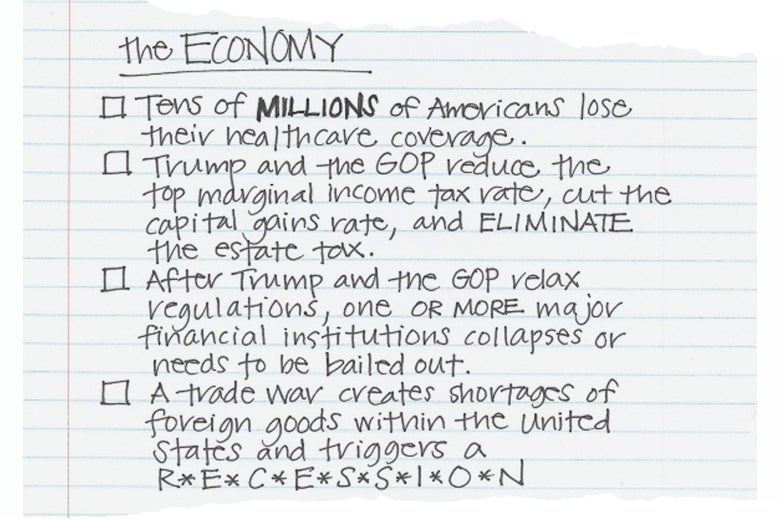 the ECONOMY
□ Tens of MILLIONS of Americans lose
their healthcare coverage.
□ Trump and the GOP reduce the
top marginal income tax rate, cut the
capital gains rate, and ELIMINATE
the estate tax.
□ After Trump and the GOP relax
regulations, one OR MORE major
financial institutions collapses or
needs to be bailed out.
□ A trade war creates shortages of
foreign goods within the United
States and triggers a
R*E*C*E*S*S*I*O*N